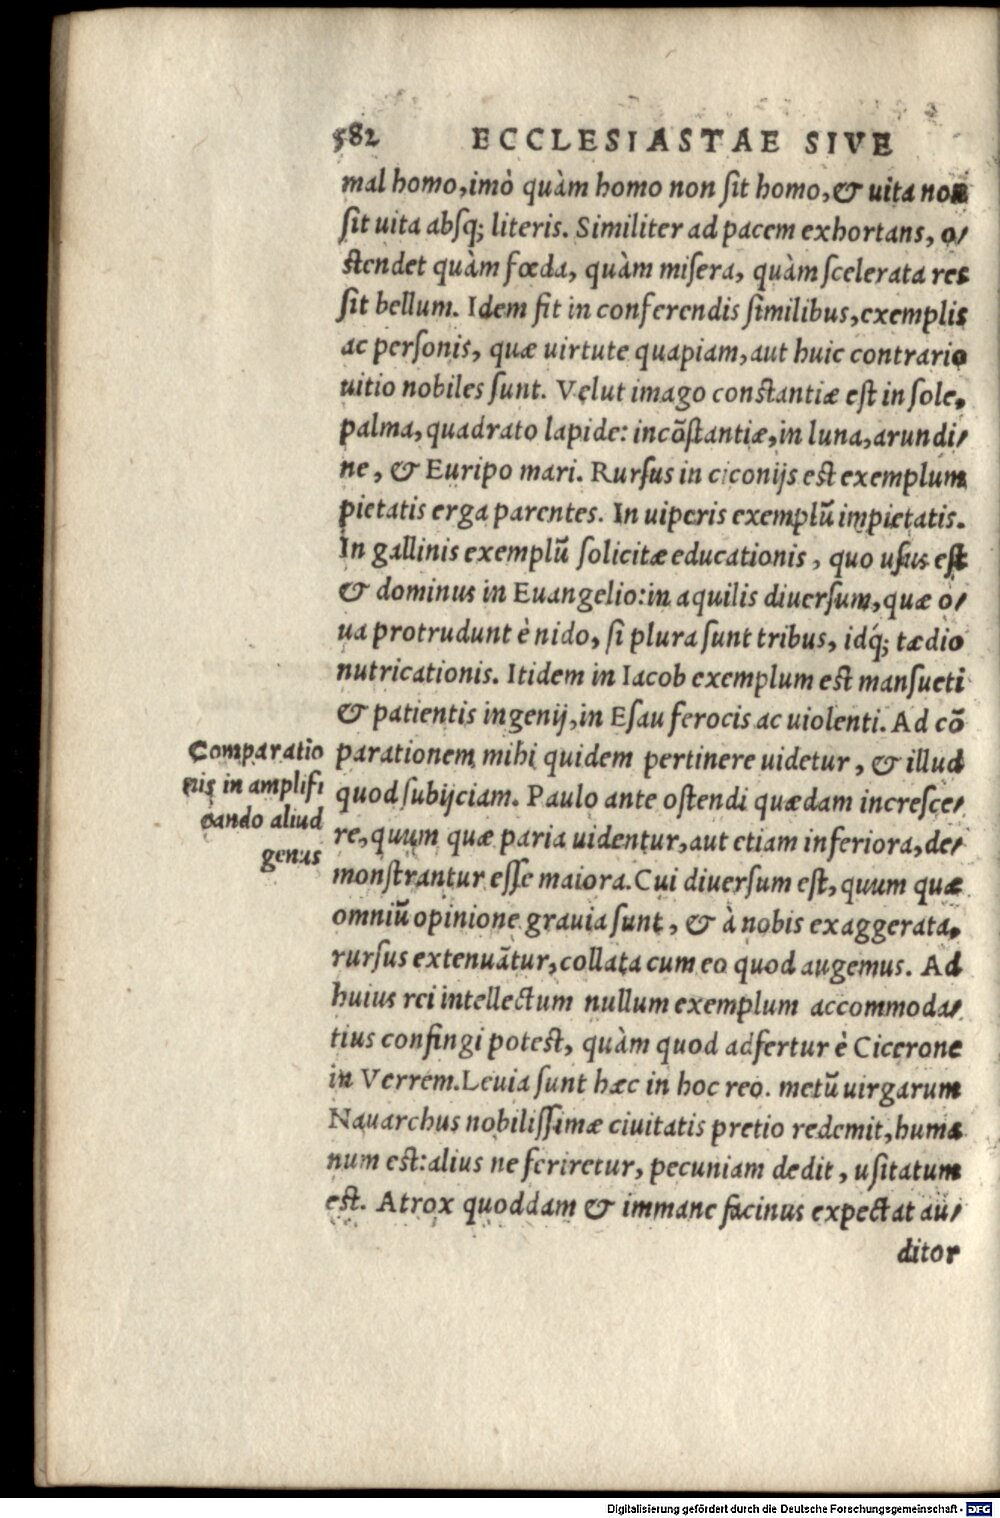 582 ECCLESIASTAE SIVE
mal homo, imò quàm homo non ſit homo, & uita non
ſit uita abſq; literis. Similiter ad pacem exhortans, o/
ſtendet quàm fœda, quàm miſera, quàm ſcelerata res
ſit bellum. Idem fit in conferendis ſimilibus, exemplis
ac perſonis, quæ uirtute quapiam, aut huic contrario
uitio nobiles ſunt. Velut imago conſtantiæ eſt in ſole,
palma, quadrato lapide: incõſtantiæ, in luna, arundi/
ne, & Euripo mari. Rurſus in ciconijs eſt exemplum
pietatis erga parentes. In uiperis exemplũ impietatis.
In gallinis exemplũ ſolicitæ educationis, quo uſus eſt
& dominus in Euangelio: in aquilis diuerſum, quæ o/
ua protrudunt è nido, ſi plura ſunt tribus, idq́; tædio
nutricationis. Itidem in Iacob exemplum eſt manſueti
& patientis ingenij, in Eſau ferocis ac uiolenti. Ad cõ
parationem mihi quidem pertinere uidetur, & illud
quod ſubijciam. Paulo ante oſtendi quædam increſce/
re, quum quæ paria uidentur, aut etiam inferiora, de/
monſtrantur eſſe maiora. Cui diuerſum eſt, quum quæ
omniũ opinione grauia ſunt, & à nobis exaggerata,
rurſus extenuãtur, collata cum eo quod augemus. Ad
huius rei intellectum nullum exemplum accommoda/
tius confingi poteſt, quàm quod adfertur è Cicerone
in Verrem. Leuia ſunt hæc in hoc reo. metũ uirgarum
Nauarchus nobiliſſimæ ciuitatis pretio redemit, huma
num eſt: alius ne feriretur, pecuniam dedit, uſitatum
eſt. Atrox quoddam & immane facinus expectat au/
ditor
Comparatio
nis in amplifi
cando aliud
genus
Digitalisierung gefördert durch die Deutsche Forschungsgemeinschaft - DFG